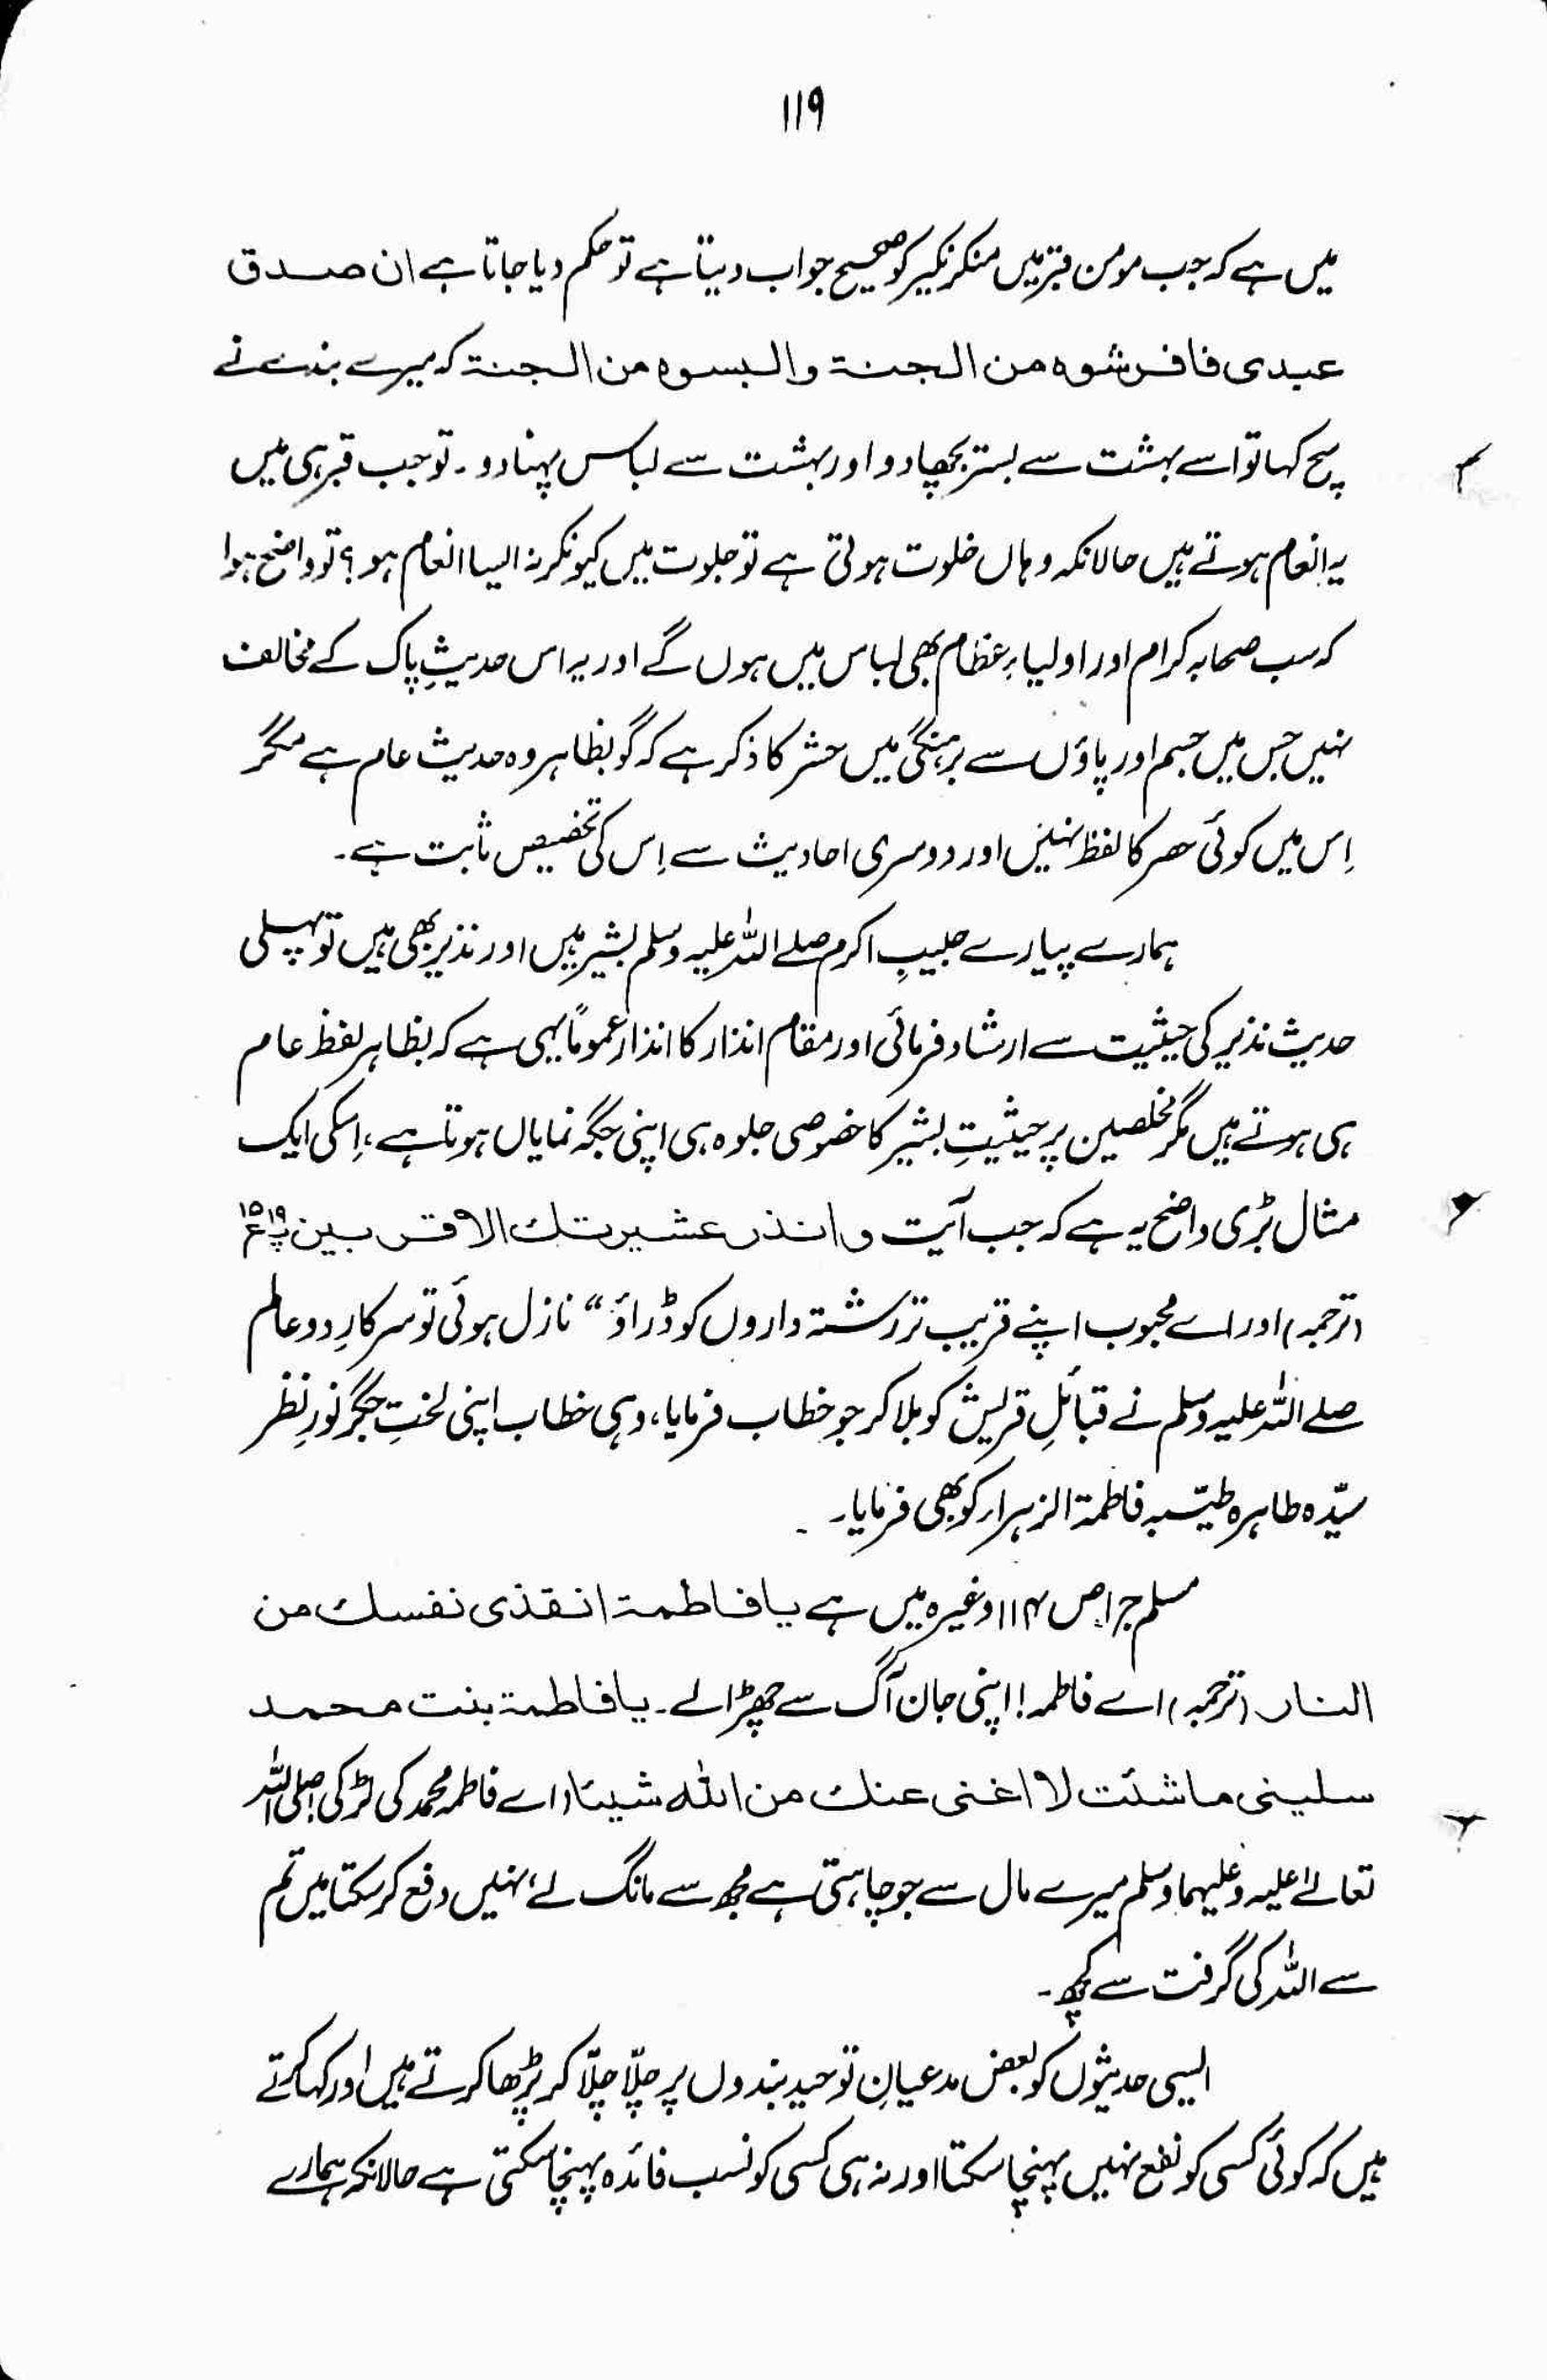 ۱۱۹
میں ہے کہ جب مومن قبر میں منکر نکیر کو صحیح جواب دیتا ہے تو حکم دیا جاتا ہے ان صدق
عبدی فافرشوہ من الجنۃ والبسوہ من الجنۃ کہ میرے بندے نے
سچ کہا تو اسے بہشت سے بستر بچھا دو اور بہشت سے لباس پہنا دو۔ تو جب قبر ہی میں
یہ انعام ہوتے ہیں حالانکہ وہاں خلوت ہوتی ہے تو جلوت میں کیونکر نہ ایسا انعام ہو؟ تو واضح ہوا
کہ سب صحابہ کرام اور اولیاءِ عظام بھی لباس میں ہوں گے اور یہ اس حدیثِ پاک کے مخالف
نہیں جس میں جسم اور پاؤں سے برہنگی میں حشر کا ذکر ہے کہ گو بظاہر وہ حدیث عام ہے مگر
اِس میں کوئی حصر کا لفظ نہیں اور دوسری احادیث سے اِس کی تخصیص ثابت ہے۔
ہمارے پیارے حبیبِ اکرم صلے اللہ علیہ وسلم بشیر ہیں اور نذیر بھی ہیں تو پہلی
حدیث نذیر کی حیثیت سے ارشاد فرمائی اور مقام انذار کا انذار عموماً یہی ہے کہ بظاہر لفظ عام
ہی ہوتے ہیں مگر مخلصین پر حیثیتِ بشیر کا خصوصی جلوہ ہی اپنی جگہ نمایاں ہوتا ہے، اِسکی ایک
مثال بڑی واضح یہ ہے کہ جب آیت وانذر عشیرتك الاقربین پ۱۹ ع۱۵
(ترجمہ) اور اے محبوب اپنے قریب تر رشتہ داروں کو ڈراؤ“ نازل ہوئی تو سرکارِ دوعالم
صلے اللہ علیہ وسلم نے قبائلِ قریش کو بلا کر جو خطاب فرمایا، وہی خطاب اپنی لختِ جگر نورِ نظر
سیّدہ طاہرہ طیّبہ فاطمۃ الزہراء کو بھی فرمایا۔
مسلم ج۱ ص ۱۱۴ وغیرہ میں ہے یا فاطمۃ انقذی نفسك من
النار (ترجمہ) اے فاطمہ! اپنی جان آگ سے چھڑا لے۔ یا فاطمۃ بنت محمد
سلینی ما شئت لا اغنی عنك من اللہ شیئا (اے فاطمہ محمد کی لڑکی صلی اللہ
تعالےٰ علیہ وعلیہما وسلم میرے مال سے جو چاہتی ہے مجھ سے مانگ لے، نہیں دفع کر سکتا میں تم
سے اللہ کی گرفت سے کچھ۔
ایسی حدیثوں کو بعض مدعیانِ توحید بندوں پر چلّا چلّا کر پڑھا کرتے ہیں اور کہا کرتے
ہیں کہ کوئی کسی کو نفع نہیں پہنچا سکتا اور نہ ہی کسی کو نسب فائدہ پہنچا سکتی ہے حالانکہ ہمارے